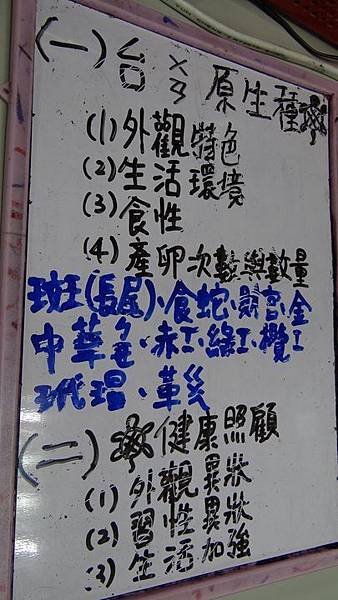 (一) 台ㄨㄢ 原生種
(1) 外觀特色
(2) 生活環境
(3) 食性
(4) 產卵次數與數量
斑王(長尾)、食蛇、財宮、金
中華、赤工、綠工、欖工
玳瑁、革
(二) 健康照顧
(1) 外觀異狀
(2) 習性異狀
(3) 生活加強